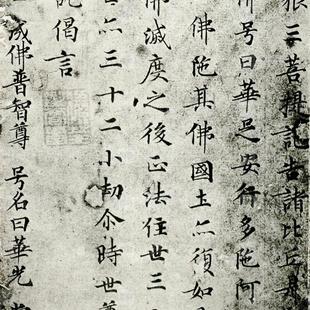 藐三菩提記告諸比丘是
号曰華足安行多陁阿
佛陁其佛國土亦復如是
佛滅度之後正法住世三
世亦三十二小劫尒時世尊
說偈言
成佛普智尊 号名曰華光 當